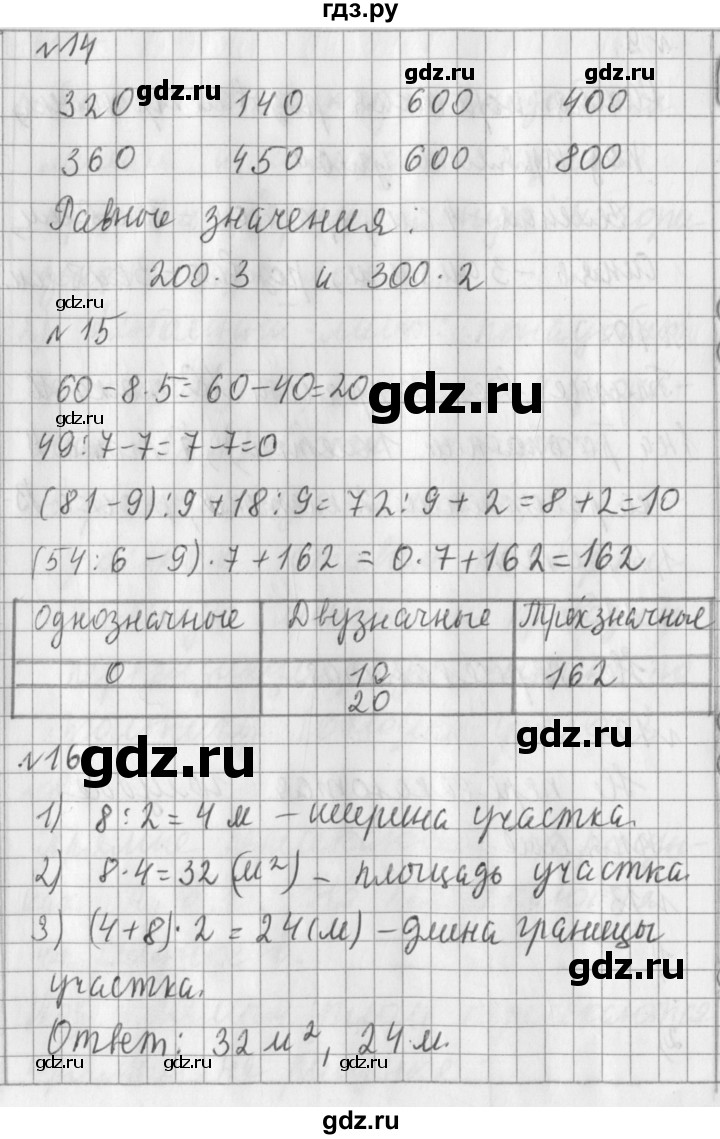 гдз.ру
№14
gdz.ru
320 140 600 400
gdz.ru
gdz.ru
360 450 600 800
Равные значения:
200·3 и 300·2
gdz.ru
№15
60-8·5=60-40=20
gdz.ru
gdz.ru
49:7-7=7-7=0
(81-9):9+18:9=72:9+2=8+2=10
(54:6-9)·7+162=0·7+162=162
Однозначные Двузначные Трёхзначные
0 10 162
20
gdz.ru
№16
gdz.ru
1) 8:2=4 м - ширина участка.
2) 8·4=32 (м²) - площадь участка.
3) (4+8)·2=24(м) - длина границы
gdz.ru
участка.
Ответ: 32 м², 24 м.
gdz.ru gdz.ru gdz.ru
gdz.ru